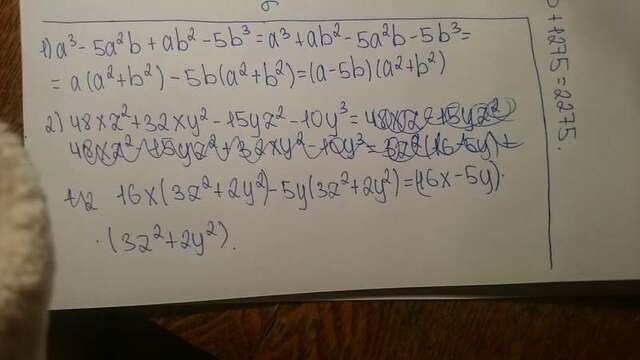 1) a³ - 5a²b + ab² - 5b³ = a³ + ab² - 5a²b - 5b³ =
= a(a² + b²) - 5b(a² + b²) = (a - 5b)(a² + b²)
2) 48xz² + 32xy² - 15yz² - 10y³ =
16x(3z² + 2y²) - 5y(3z² + 2y²) = (16x - 5y) ·
· (3z² + 2y²).
+ 1275 = 2275.